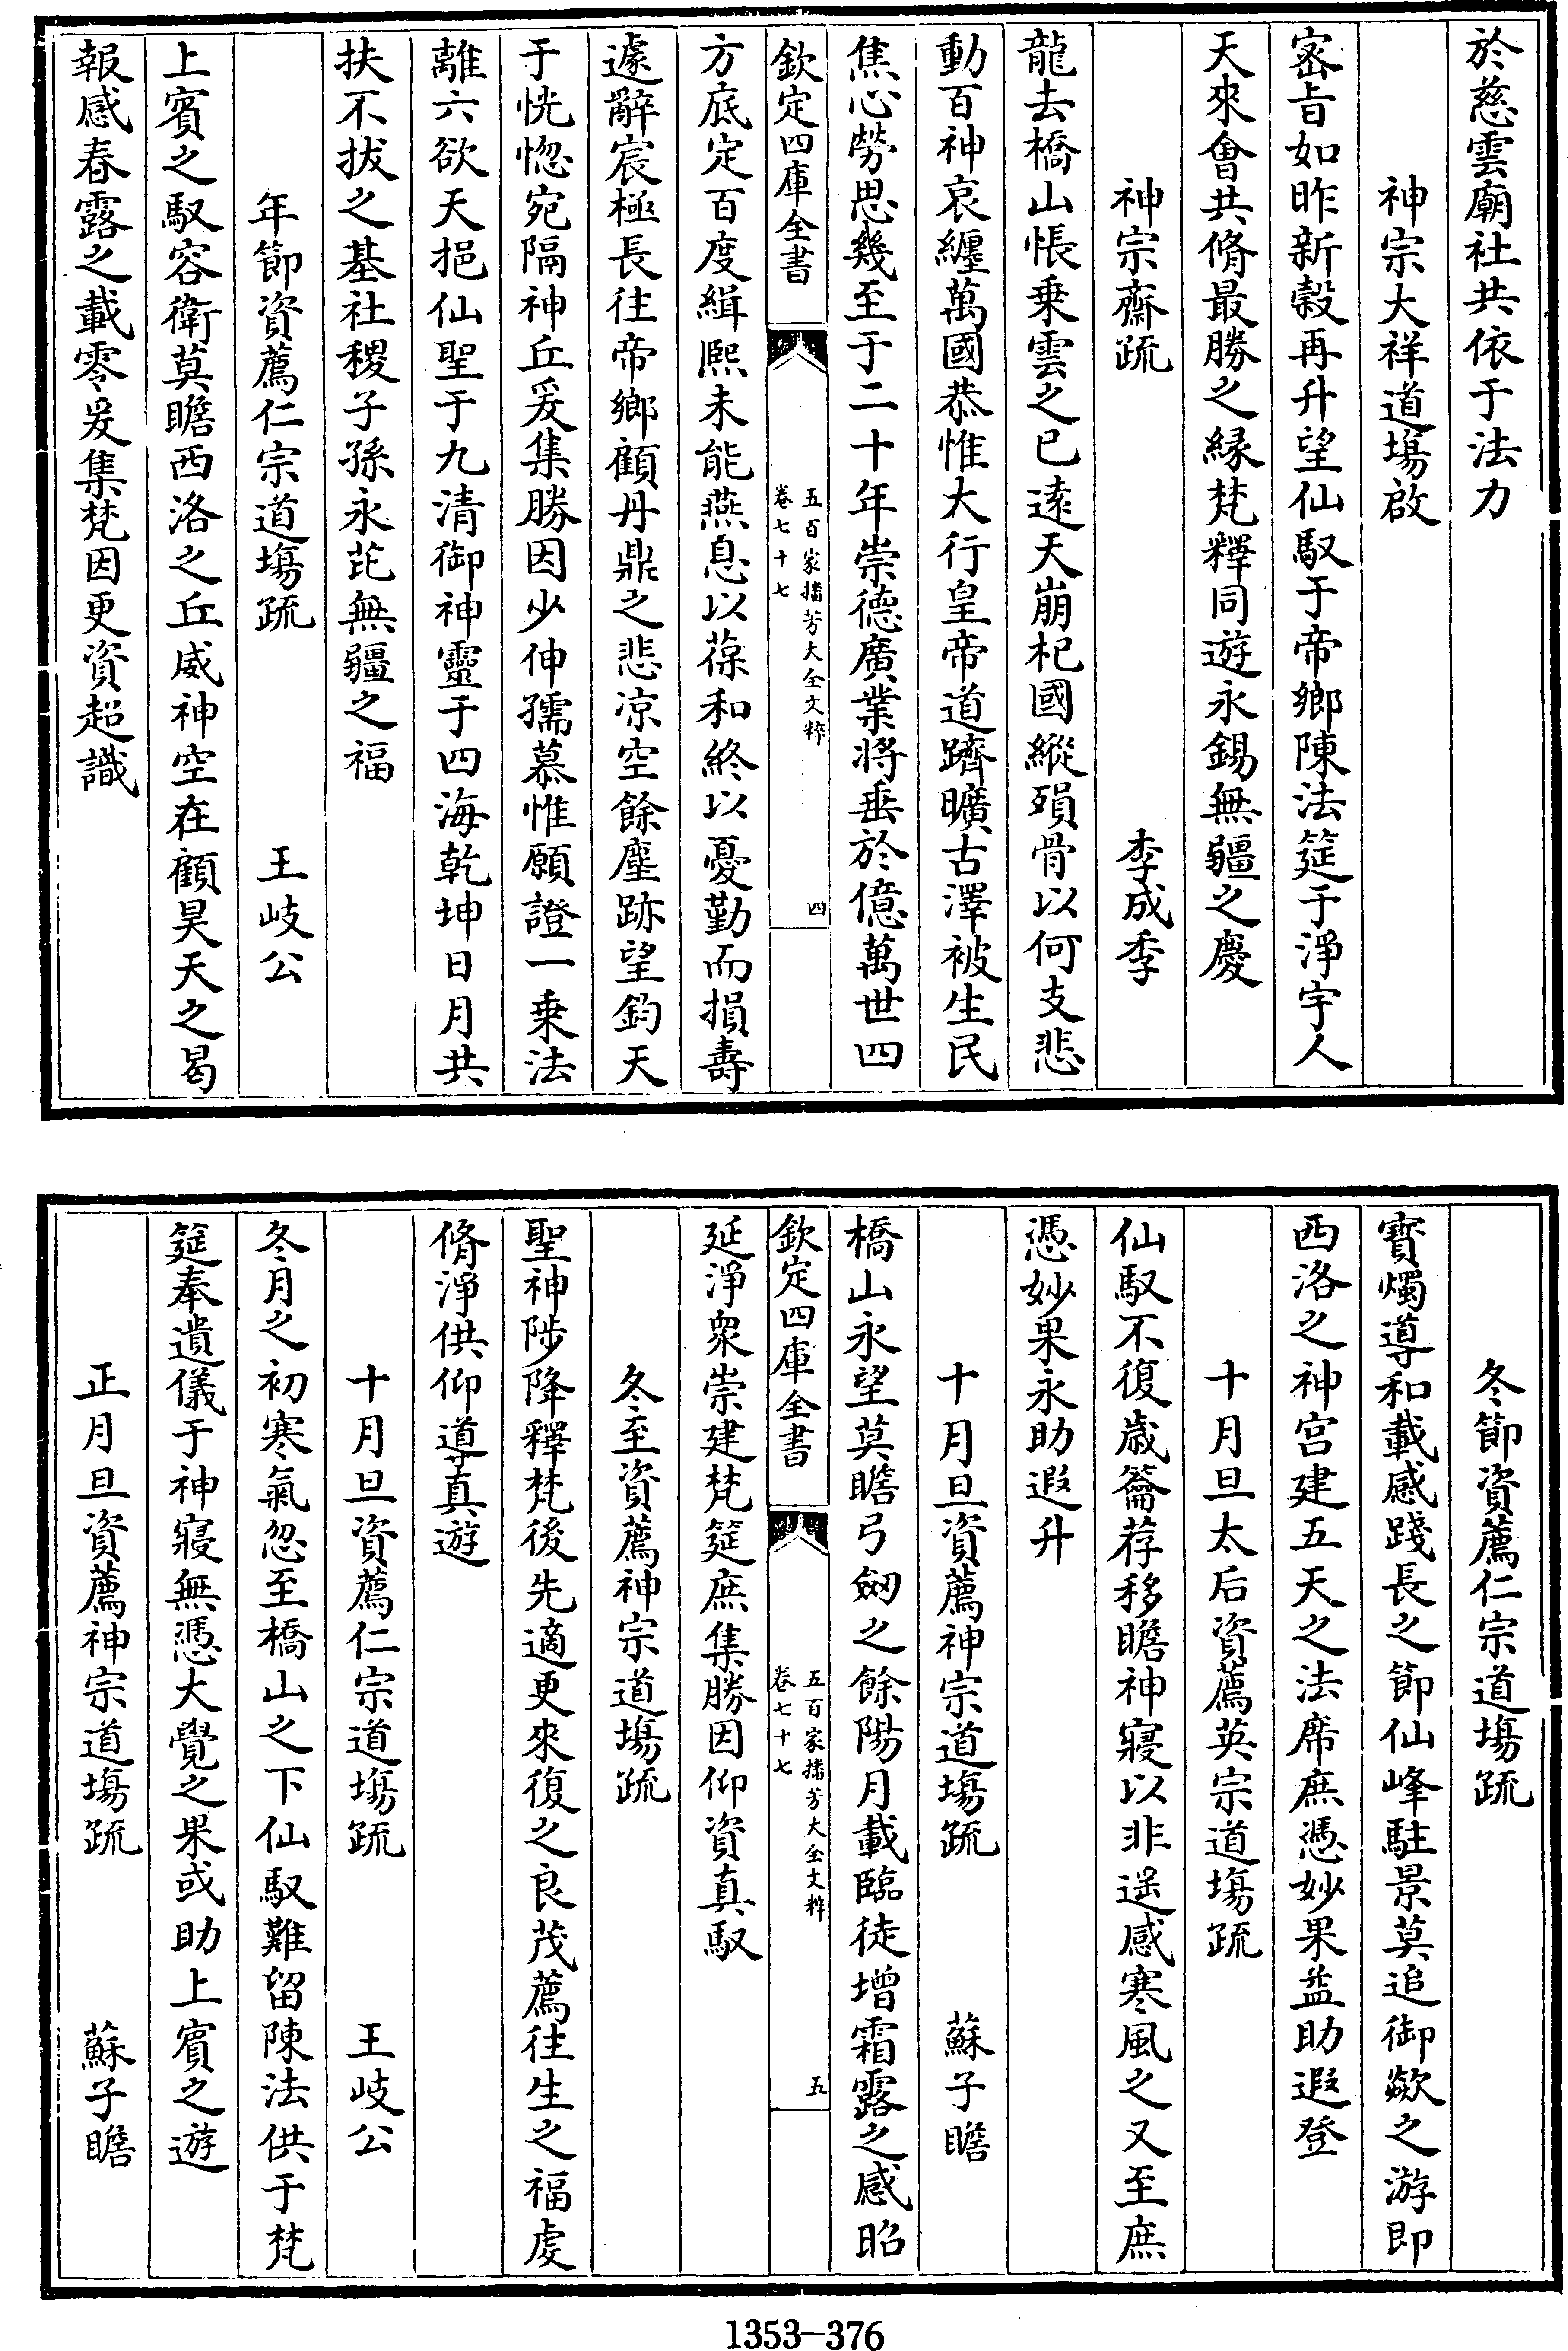 於慈雲廟社共依于法力
神宗大祥道塲啟
宻㫖如昨新穀再升望仙馭于帝鄉陳法筵于淨宇人
天來㑹共脩最勝之縁梵釋同遊永錫無疆之慶
神宗齋疏 李成季
龍去橋山悵乗雲之已逺天崩杞國縱殞骨以何支悲
動百神哀纏萬國恭惟大行皇帝道躋曠古澤被生民
焦心勞思幾至于二十年崇德廣業将垂於億萬世四
欽定四庫全書 五百家播芳大全文粹 卷七十七 四
方底定百度緝熈未能燕息以葆和終以憂勤而損壽
遽辭宸極長往帝鄉顧丹鼎之悲凉空餘塵跡望鈞天
于恍惚宛隔神丘爰集勝因少伸孺慕惟願證一乗法
離六欲天挹仙聖于九清御神靈于四海乾坤日月共
扶不拔之基社稷子孫永芘無疆之福
年節資薦仁宗道塲疏 王岐公
上賓之馭容衛莫瞻西洛之丘威神空在顧昊天之曷
報感春露之載零爰集梵因更資超識
冬節資薦仁宗道塲疏
寳燭導和載感踐長之節仙峰駐景莫追御歘之游即
西洛之神宫建五天之法席庶憑妙果益助遐登
十月旦太后資薦英宗道塲疏
仙馭不復歲籥荐移瞻神寢以非遥感寒風之又至庶
憑妙果永助遐升
十月旦資薦神宗道塲疏 蘇子瞻
橋山永望莫瞻弓劒之餘陽月載臨徒增霜露之感昭
欽定四庫全書 五百家播芳大全文粹 卷七十七 五
延淨衆崇建梵筵庶集勝因仰資真馭
冬至資薦神宗道塲疏
聖神陟降釋梵後先適更來復之良茂薦往生之福䖍
脩淨供仰導真遊
十月旦資薦仁宗道塲疏 王岐公
冬月之初寒氣忽至橋山之下仙馭難留陳法供于梵
筵奉遺儀于神寢無憑大覺之果或助上賓之遊
正月旦資薦神宗道塲疏 蘇子瞻
1353-376